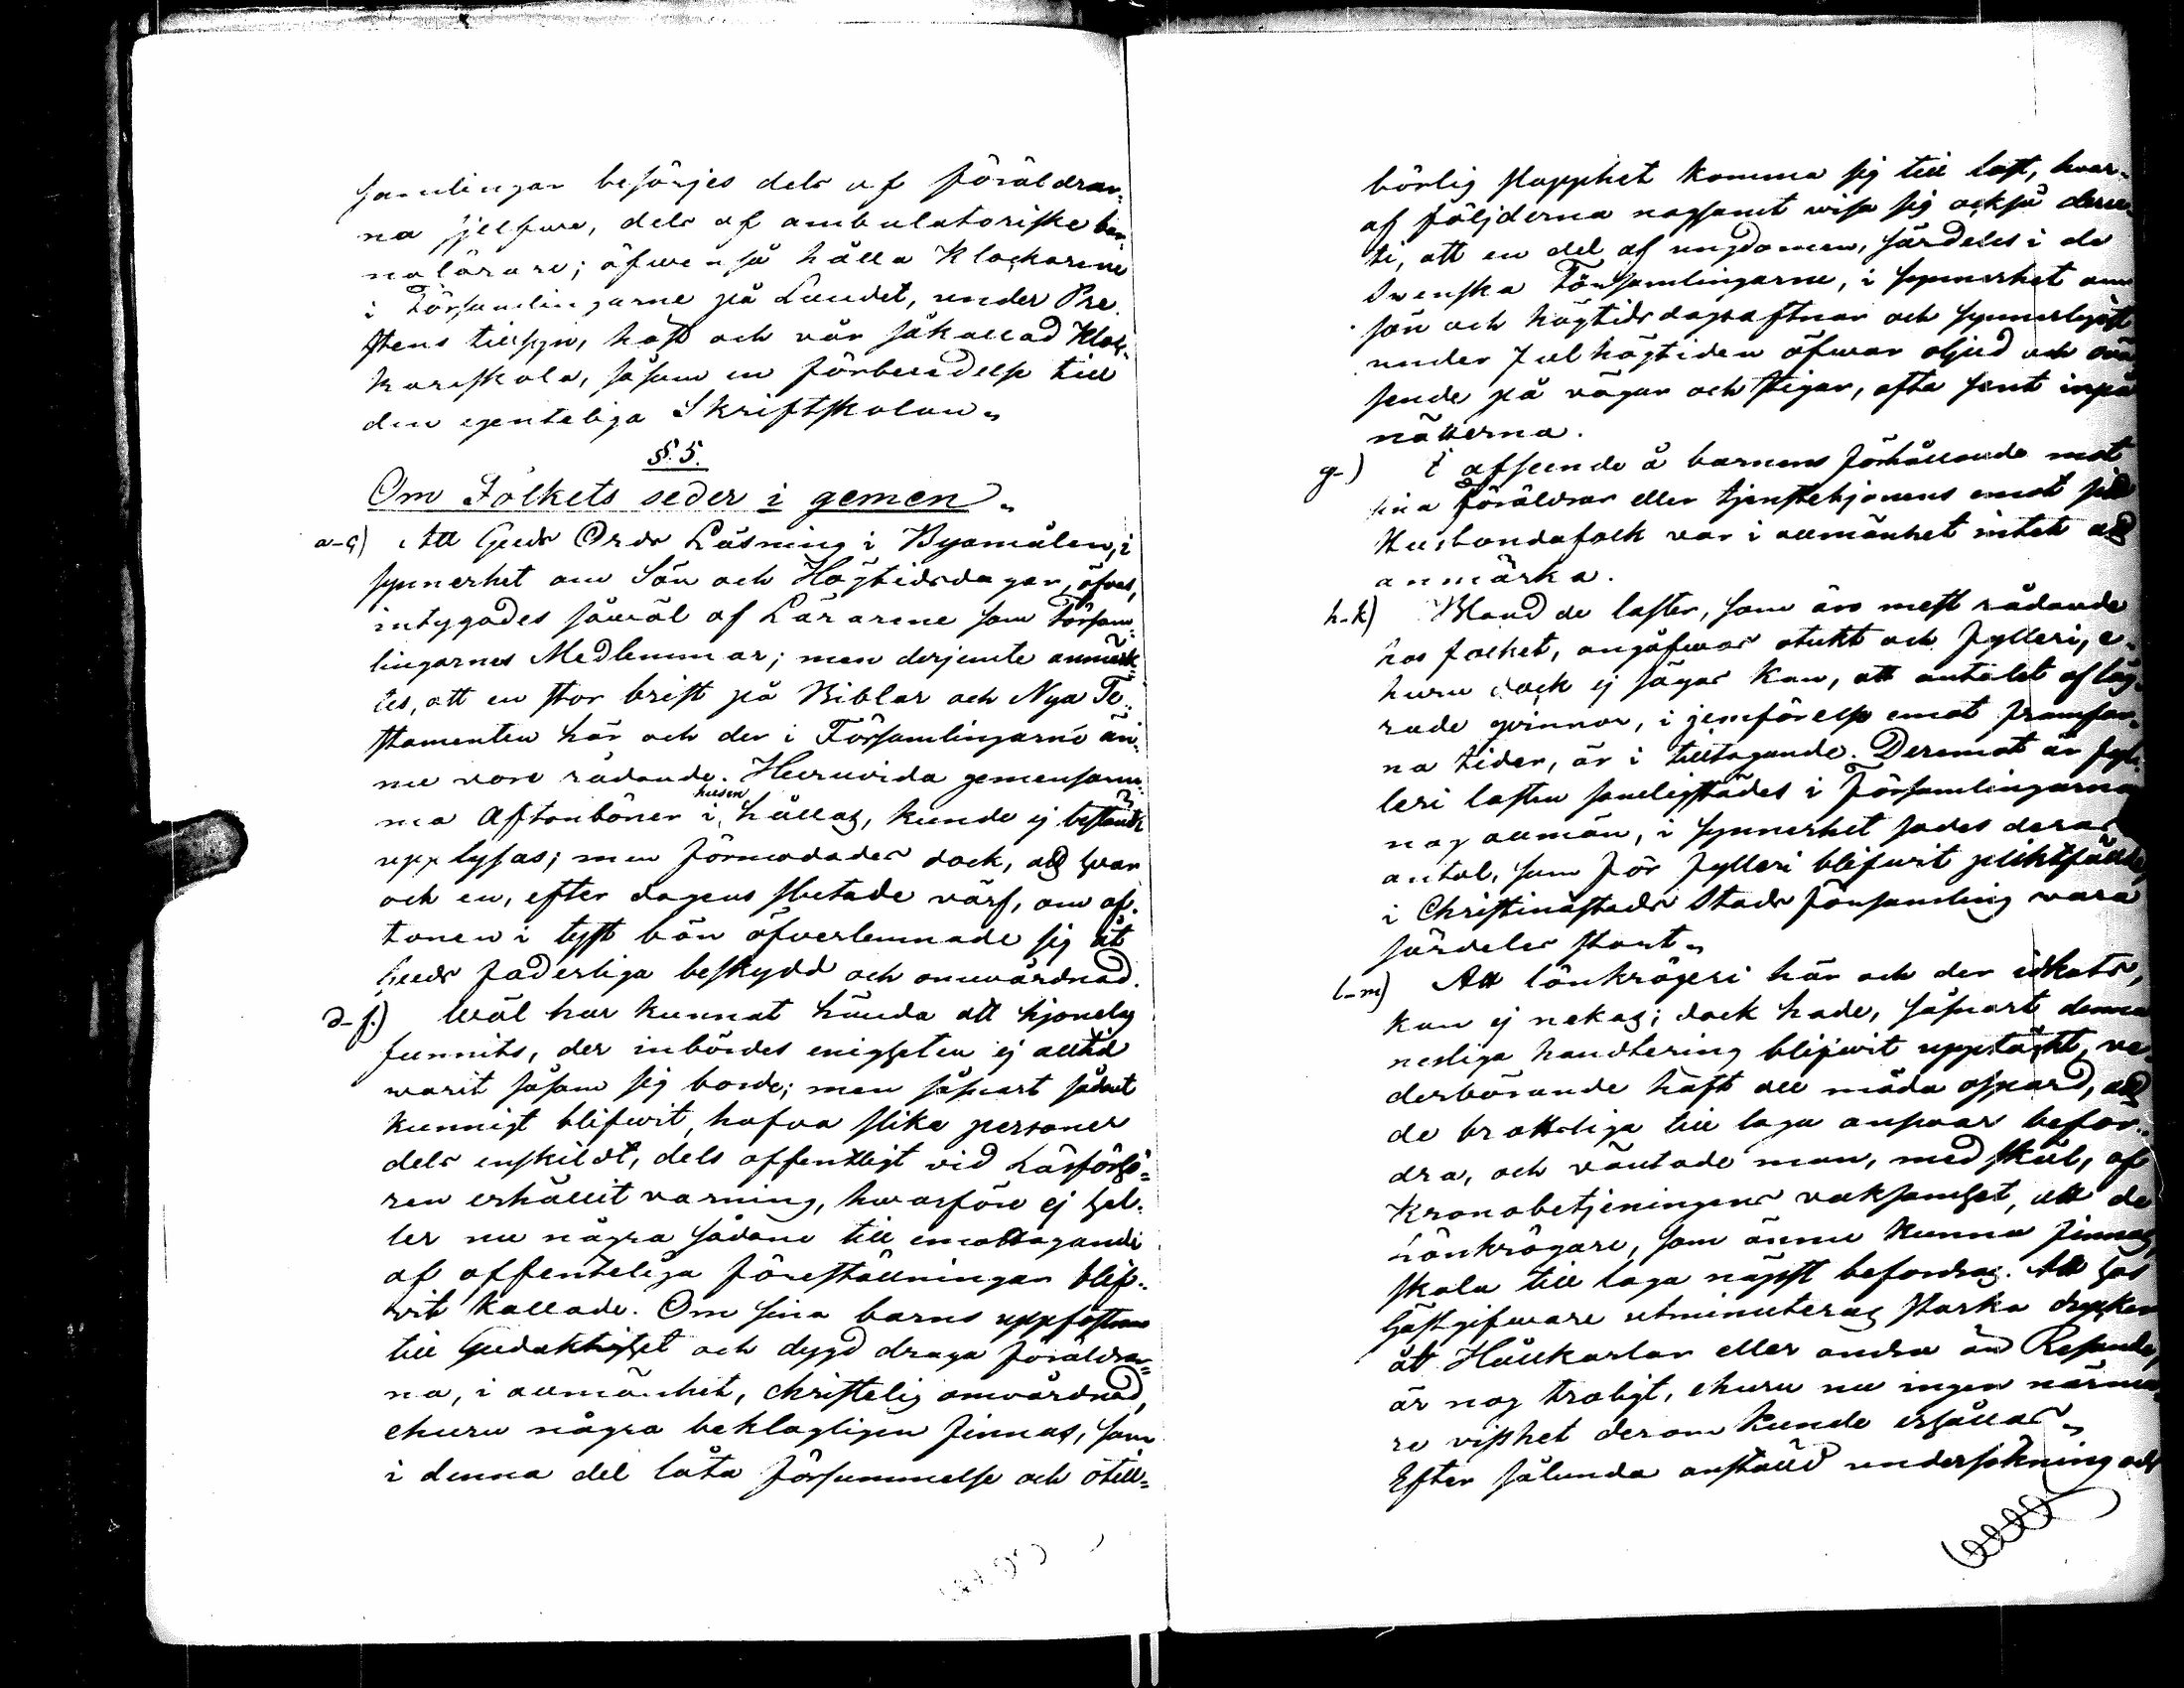 samlingar besörjes dels af föräldrar-
na sjelfwe, dels af ambulatoriske bar-
nalärare; äfwen så hålla Klockarene
i Församlingarne på Landet, under Pre-
stens tillsyn, höst och vår såkallad Kloc-
kareskola, såsom en förberedelse till
den egenteliga Skriftskolan„
§. 5.
Om Folkets seder i gemen„
a-c) Att Guds Ords Läsning i Byamålen, i
synnerhet om Sön och Högtidsdagar, öfvas,
intygades såwäl af Lärarene som Försam-
lingarnes Medlemmar; men derjemte anmärk-
tes, att en stor brist på Biblar och Nya Te-
stamenten här och der i Församlingarne än-
nu vore rådande. Huruvida gemensam-
ma Aftonböner i husen hållas, kunde ej bestämdt
upplysas; men förmodades dock, att hvar
och en, efter dagens slutade värf, om af-
tonen i tyst bön öfverlemnade sig åt
Guds faderliga beskydd och omwårdnad.
d-f.) Wäl har kunnat hända att hjonelag
funnits, der inbördes enigheten ej alltid
warit såsom sig borde; men såsnart sådant
kunnigt blifwit, hafva slike personer
dels enskildt, dels offentligt vid Läsförhö-
ren erhållit varning, hwarföre ej hel-
ler nu några sådane till emottagande
af offenteliga föreställningar blif-
wit kallade. Om sina barns uppfostran
till Gudaktighet och dygd draga föräldrar-
na, i allmänhet, christelig omvårdnad,
ehuru några beklagligen finnas, som
i denna del låta försummelse och otill-
börlig slapphet komma sig till last, hvar-
af följderna nogsamt wisa sig också deru-
ti, att en del af ungdomen, särdeles i de
Swenska Församlingarne, i synnerhet om
sön och högtidsdagsaftnar och synnerligast
under Julhögtiden öfwar oljud och ovä-
sende på vägar och stigar, ofta sent inpå
nätterna.
g-) I afseende å barnens förhållande mot
sina föräldrar eller tjenstehjonens emot sitt
Husbondafolk var i allmänhet intet att
anmärka.
h-k) Bland de laster, som äro mest rådande
hos folket, angåfwos otukt och fylleri, e-
huru dock ej sägas kan, att antalet af läg-
rade qvinnor, i jemförelse emot framfar-
na tider, är i tilltagande. Deremot är fyl-
leri lasten sannligstädes i Församlingarna
nog allmän, i synnerhet sades deras
antal, som för fylleri blifwit pliktfällde,
i Christinæstads Stads församling vara
särdeles stort„
l-m) Att lönkrögeri här och der idkats,
kan ej nekas; dock hade, såsnart denna
nesliga handtering blifwit upptäckt, ve-
derbörande haft all möda ospard, att
de brottsliga till laga answar befor-
dra, och väntade man, med skäl, af
Kronobetjeningens vaksamhet, att de
Lönkrögare, som ännu kunna finnas,
skola till laga näpst befordras. Att hos
Gästgifware utminuteras starka drycker
åt Hållkarlar eller andra än Resande,
är nog troligt, ehuru nu ingen närma-
re visshet derom kunde erhållas„
Efter sålunda anställd undersökning och